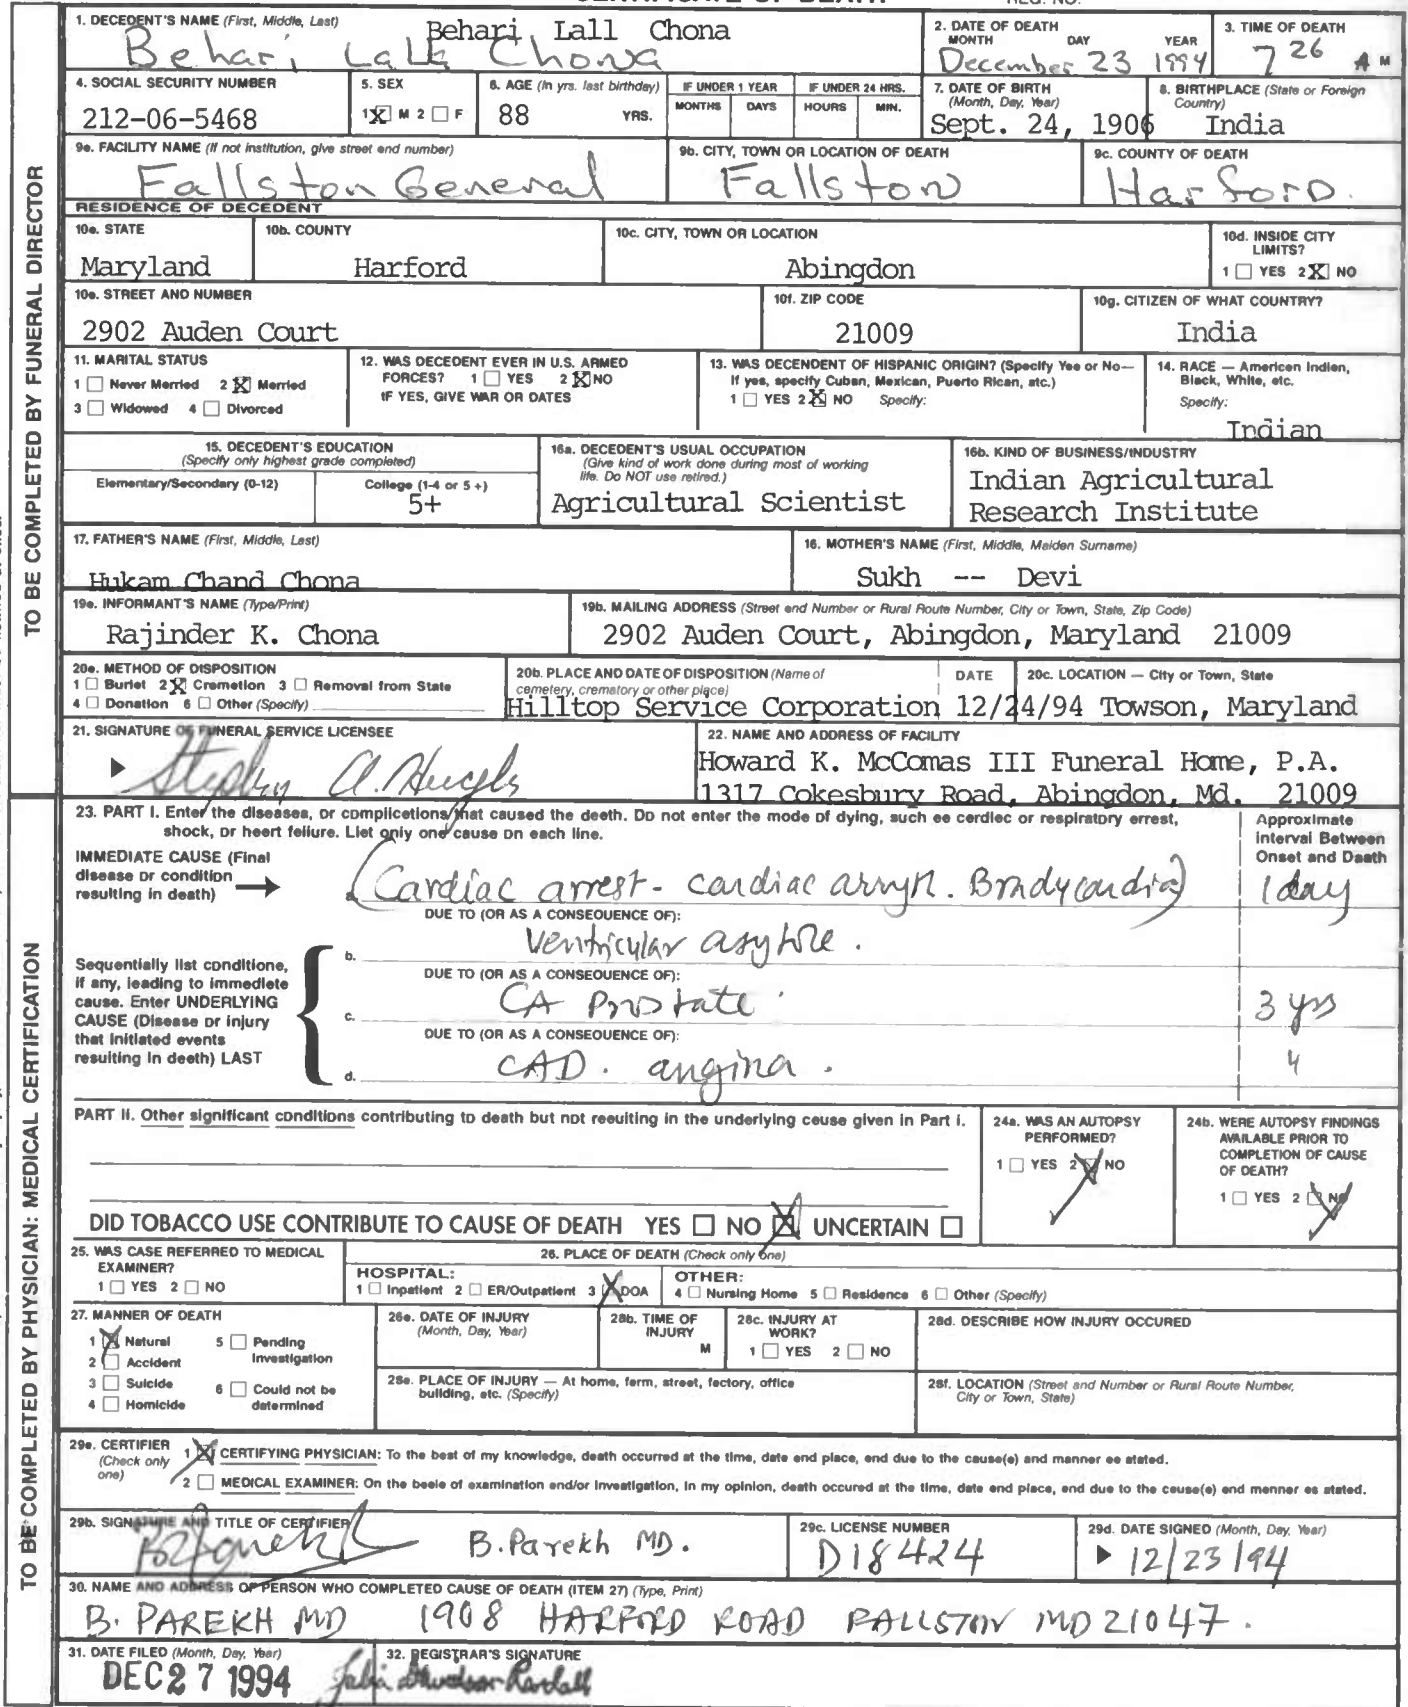 1. DECEDENT'S NAME (First, Middle, Last)
Behari Lall Chona
Behari Lall Chona
2. DATE OF DEATH
MONTH DAY YEAR
December 23 1994
3. TIME OF DEATH
7 26 A M
4. SOCIAL SECURITY NUMBER
212-06-5468
5. SEX
1 X M 2 □ F
6. AGE (In yrs. last birthday)
88 YRS.
IF UNDER 1 YEAR
MONTHS DAYS
IF UNDER 24 HRS.
HOURS MIN.
7. DATE OF BIRTH
(Month, Day, Year)
Sept. 24, 1906
8. BIRTHPLACE (State or Foreign
Country)
India
9e. FACILITY NAME (If not institution, give street end number)
Fallston General
9b. CITY, TOWN OR LOCATION OF DEATH
Fallston
9c. COUNTY OF DEATH
Harford.
RESIDENCE OF DECEDENT
10e. STATE
Maryland
10b. COUNTY
Harford
10c. CITY, TOWN OR LOCATION
Abingdon
10d. INSIDE CITY
LIMITS?
1 □ YES 2 X NO
10e. STREET AND NUMBER
2902 Auden Court
10f. ZIP CODE
21009
10g. CITIZEN OF WHAT COUNTRY?
India
11. MARITAL STATUS
1 □ Never Merried 2 X Merried
3 □ Widowed 4 □ Divorced
12. WAS DECEDENT EVER IN U.S. ARMED
FORCES? 1 □ YES 2 X NO
IF YES, GIVE WAR OR DATES
13. WAS DECENDENT OF HISPANIC ORIGIN? (Specify Yee or No—
If yes, specify Cuban, Mexican, Puerto Rican, atc.)
1 □ YES 2 X NO Specify:
14. RACE — Americen Indien,
Bleck, White, etc.
Specify:
Indian
15. DECEDENT'S EDUCATION
(Specify only highest grade completed)
Elementary/Secondary (0-12)
College (1-4 or 5 +)
5+
16a. DECEDENT'S USUAL OCCUPATION
(Give kind of work done during most of working
life. Do NOT use retired.)
Agricultural Scientist
16b. KIND OF BUSINESS/INDUSTRY
Indian Agricultural
Research Institute
17. FATHER'S NAME (First, Middle, Last)
Hukam Chand Chona
16. MOTHER'S NAME (First, Middle, Maiden Surname)
Sukh -- Devi
19e. INFORMANT'S NAME (Type/Print)
Rajinder K. Chona
19b. MAILING ADDRESS (Street end Number or Rural Route Number, City or Town, State, Zip Code)
2902 Auden Court, Abingdon, Maryland 21009
20e. METHOD OF DISPOSITION
1 □ Buriet 2 X Cremetion 3 □ Removal from State
4 □ Donation 6 □ Other (Specify)
20b. PLACE AND DATE OF DISPOSITION (Name of
cemetery, crematory or other place)
Hilltop Service Corporation
DATE
12/24/94
20c. LOCATION — City or Town, State
Towson, Maryland
21. SIGNATURE OF FUNERAL SERVICE LICENSEE
Stephen A. Hughes
22. NAME AND ADDRESS OF FACILITY
Howard K. McComas III Funeral Home, P.A.
1317 Cokesbury Road, Abingdon, Md. 21009
23. PART I. Enter the diseases, or complicetions that caused the deeth. Do not enter the mode of dying, such ee cerdiec or respiratory errest,
shock, or heert feilure. Liet only one cause on each line.
Approximate
Interval Between
Onset and Daath
IMMEDIATE CAUSE (Final
disease or condition
resulting in death)
a. (Cardiac arrest - cardiac arryth. Bradycardia)
1 day
DUE TO (OR AS A CONSEQUENCE OF):
b. Ventricular asytole.
DUE TO (OR AS A CONSEQUENCE OF):
c. CA Prostate
3 yrs
DUE TO (OR AS A CONSEQUENCE OF):
d. CAD. angina.
4
Sequentially list conditione,
if any, leading to immediete
cause. Enter UNDERLYING
CAUSE (Disease or injury
that initiated events
resulting in deeth) LAST
PART II. Other significant conditions contributing to death but not reeulting in the underlying ceuse given in Part I.
24a. WAS AN AUTOPSY
PERFORMED?
1 □ YES 2 X NO
24b. WERE AUTOPSY FINDINGS
AVAILABLE PRIOR TO
COMPLETION OF CAUSE
OF DEATH?
1 □ YES 2 X NO
DID TOBACCO USE CONTRIBUTE TO CAUSE OF DEATH YES □ NO X UNCERTAIN □
25. WAS CASE REFERRED TO MEDICAL
EXAMINER?
1 □ YES 2 □ NO
26. PLACE OF DEATH (Check only one)
HOSPITAL:
1 □ Inpatient 2 □ ER/Outpatient 3 X DOA
OTHER:
4 □ Nursing Home 5 □ Residence 6 □ Other (Specify)
27. MANNER OF DEATH
1 X Natural 5 □ Pending
Investigation
2 □ Accident
3 □ Suicide 6 □ Could not be
determined
4 □ Homicide
26e. DATE OF INJURY
(Month, Day, Year)
28b. TIME OF
INJURY
M
28c. INJURY AT
WORK?
1 □ YES 2 □ NO
28d. DESCRIBE HOW INJURY OCCURED
28e. PLACE OF INJURY — At home, ferm, street, fectory, office
building, etc. (Specify)
28f. LOCATION (Street and Number or Rural Route Number,
City or Town, State)
29e. CERTIFIER
(Check only
one)
1 X CERTIFYING PHYSICIAN: To the best of my knowledge, death occurred at the time, date end place, end due to the cause(e) and manner ee atated.
2 □ MEDICAL EXAMINER: On the beeie of examination end/or Investigation, in my opinion, death occured at the time, date end place, end due to the ceuse(e) end menner es atated.
29b. SIGNATURE AND TITLE OF CERTIFIER
B. Parekh MD.
29c. LICENSE NUMBER
D18424
29d. DATE SIGNED (Month, Day, Year)
12/23/94
30. NAME AND ADDRESS OF PERSON WHO COMPLETED CAUSE OF DEATH (ITEM 27) (Type, Print)
B. PAREKH MD 1908 HARFORD ROAD FALLSTON MD 21047.
31. DATE FILED (Month, Day, Year)
DEC 27 1994
32. REGISTRAR'S SIGNATURE
TO BE COMPLETED BY FUNERAL DIRECTOR
TO BE COMPLETED BY PHYSICIAN: MEDICAL CERTIFICATION